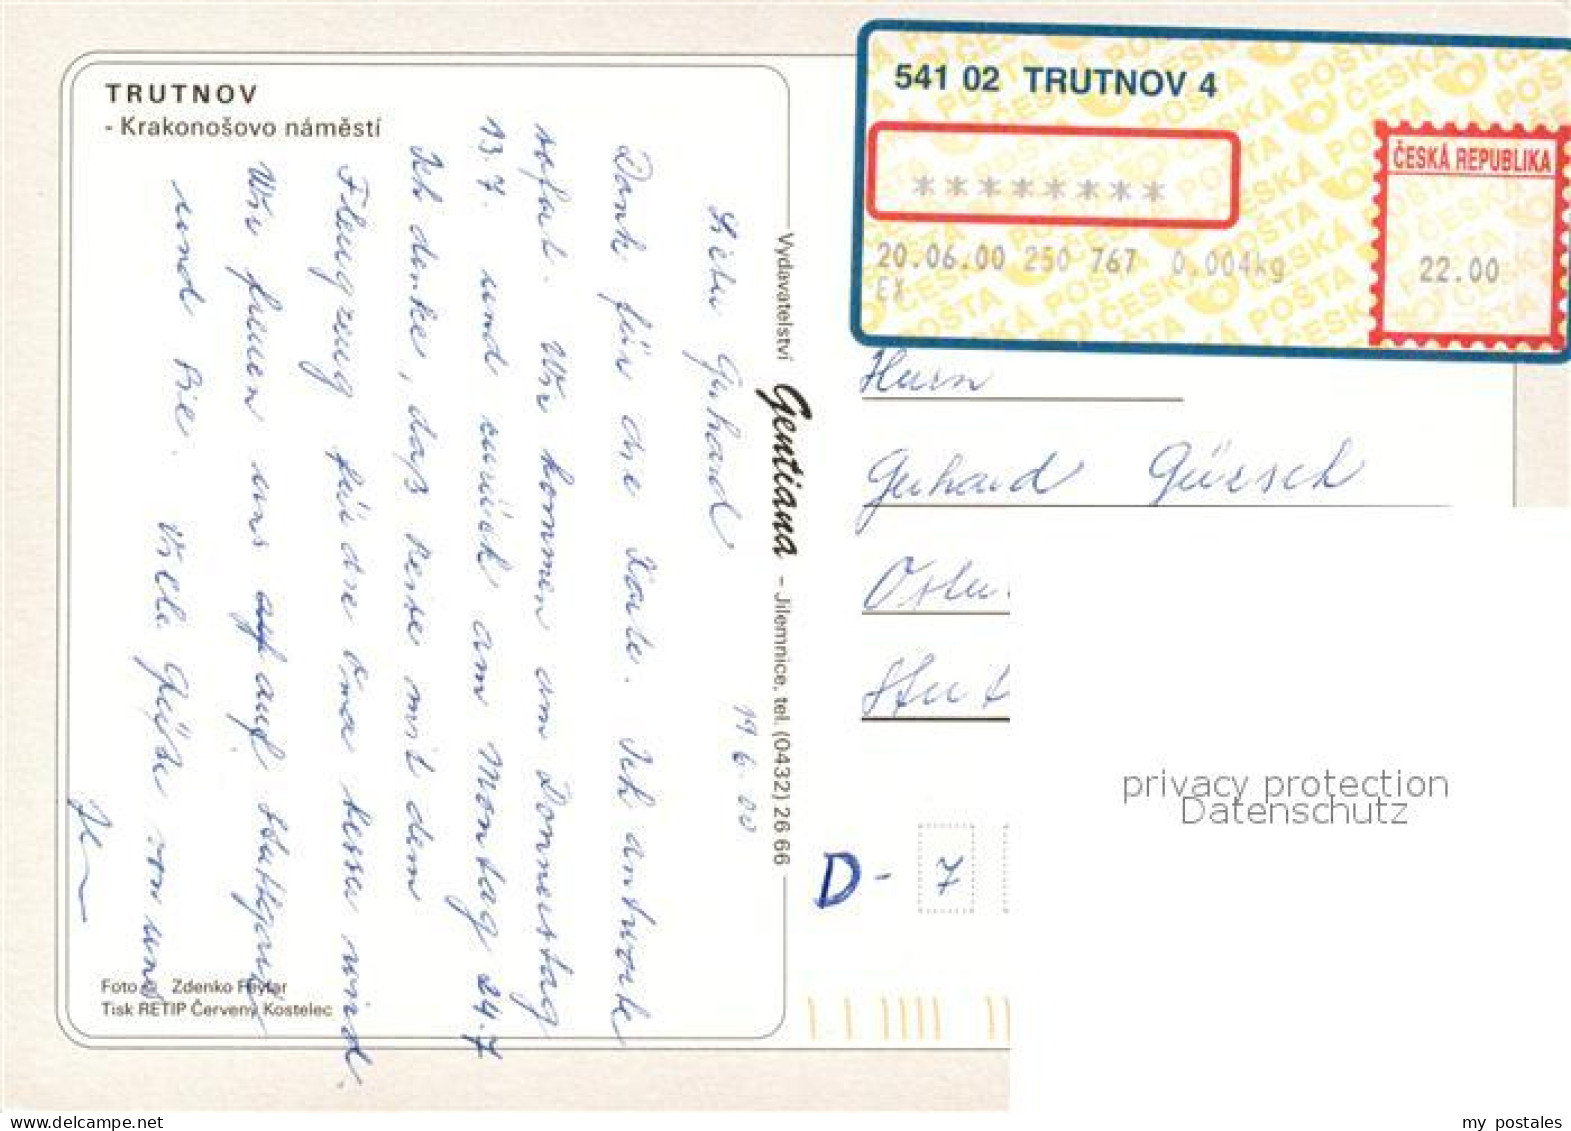 TRUTNOV
- Krakonošovo náměstí
541 02 TRUTNOV 4
ČESKÁ REPUBLIKA
********
20.06.00 250 767 0.004kg
EX
22.00
19.6.00
Lieber Gerhard
Dank für die Karte. Ich antworte
sofort. Wir kommen am Donnerstag
13.7. und zurück am Montag 24.7
Ich denke, daß Reise mit dem
Fleugzeug für die Oma besser wird.
Wir freuen uns auf Stuttgart
und Sie. Viele Grüße von uns
Vydavatelství Gentiana – Jilemnice, tel. (0432) 26 66
Herrn
Gerhard Gürsch
D- 7
Foto © Zdenko Feyfar
Tisk RETIP Červený Kostelec
privacy protection
Datenschutz
delcampe.net
my_postales